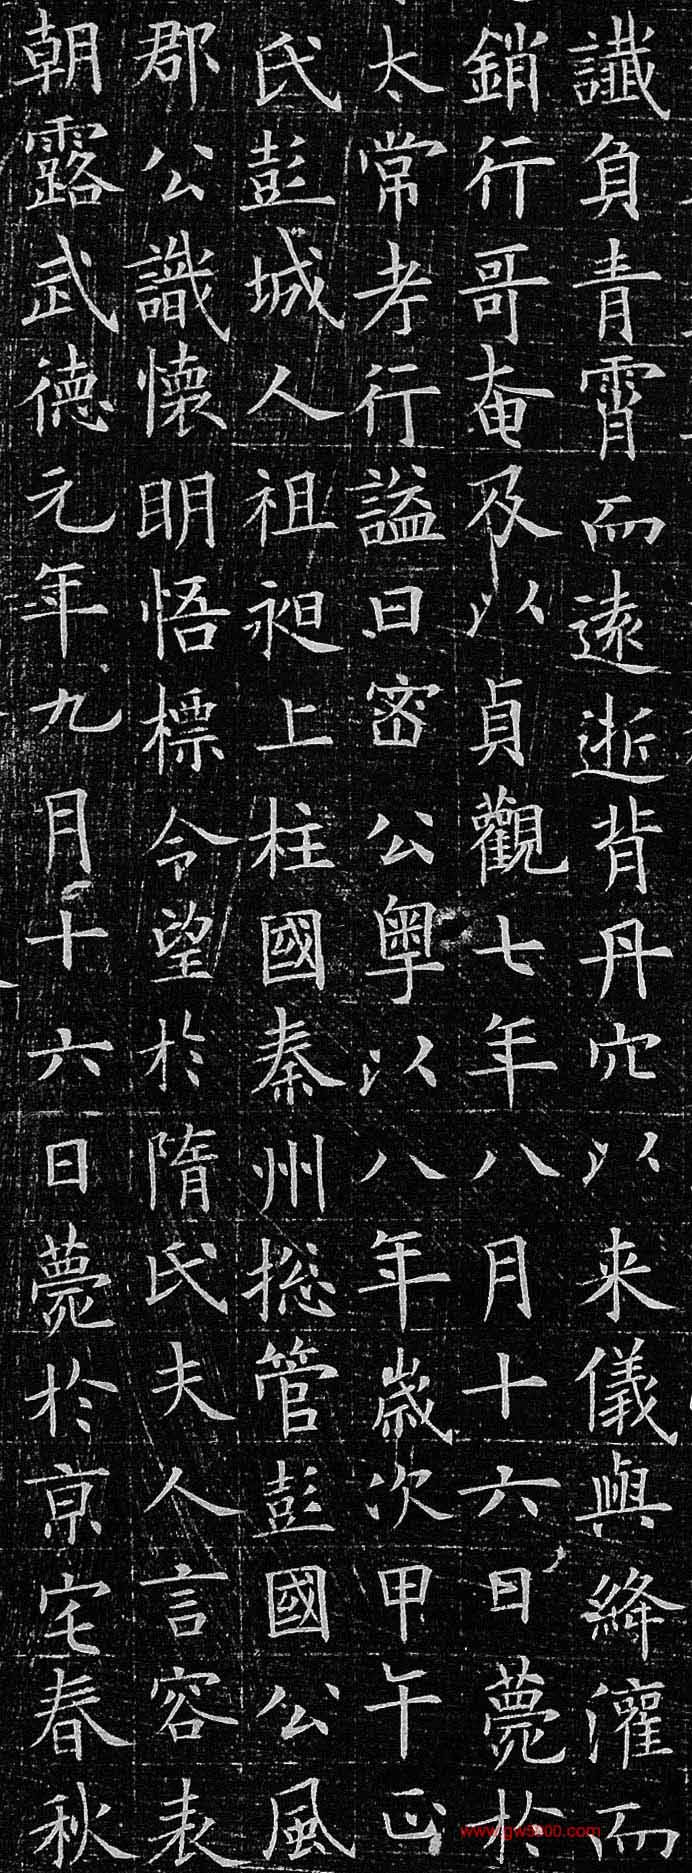 讖負青霄而遠逝背丹穴以来儀與絳灌而
銷行哥奄及以貞觀七年八月十六日薨於
太常考行謚曰密公粤以八年歲次甲午正
氏彭城人祖昶上柱國秦州揔管彭國公風
郡公識懷明悟標令望於隋氏夫人言容表
朝露武德元年九月十六日薨於京宅春秋
www.gw5200.com